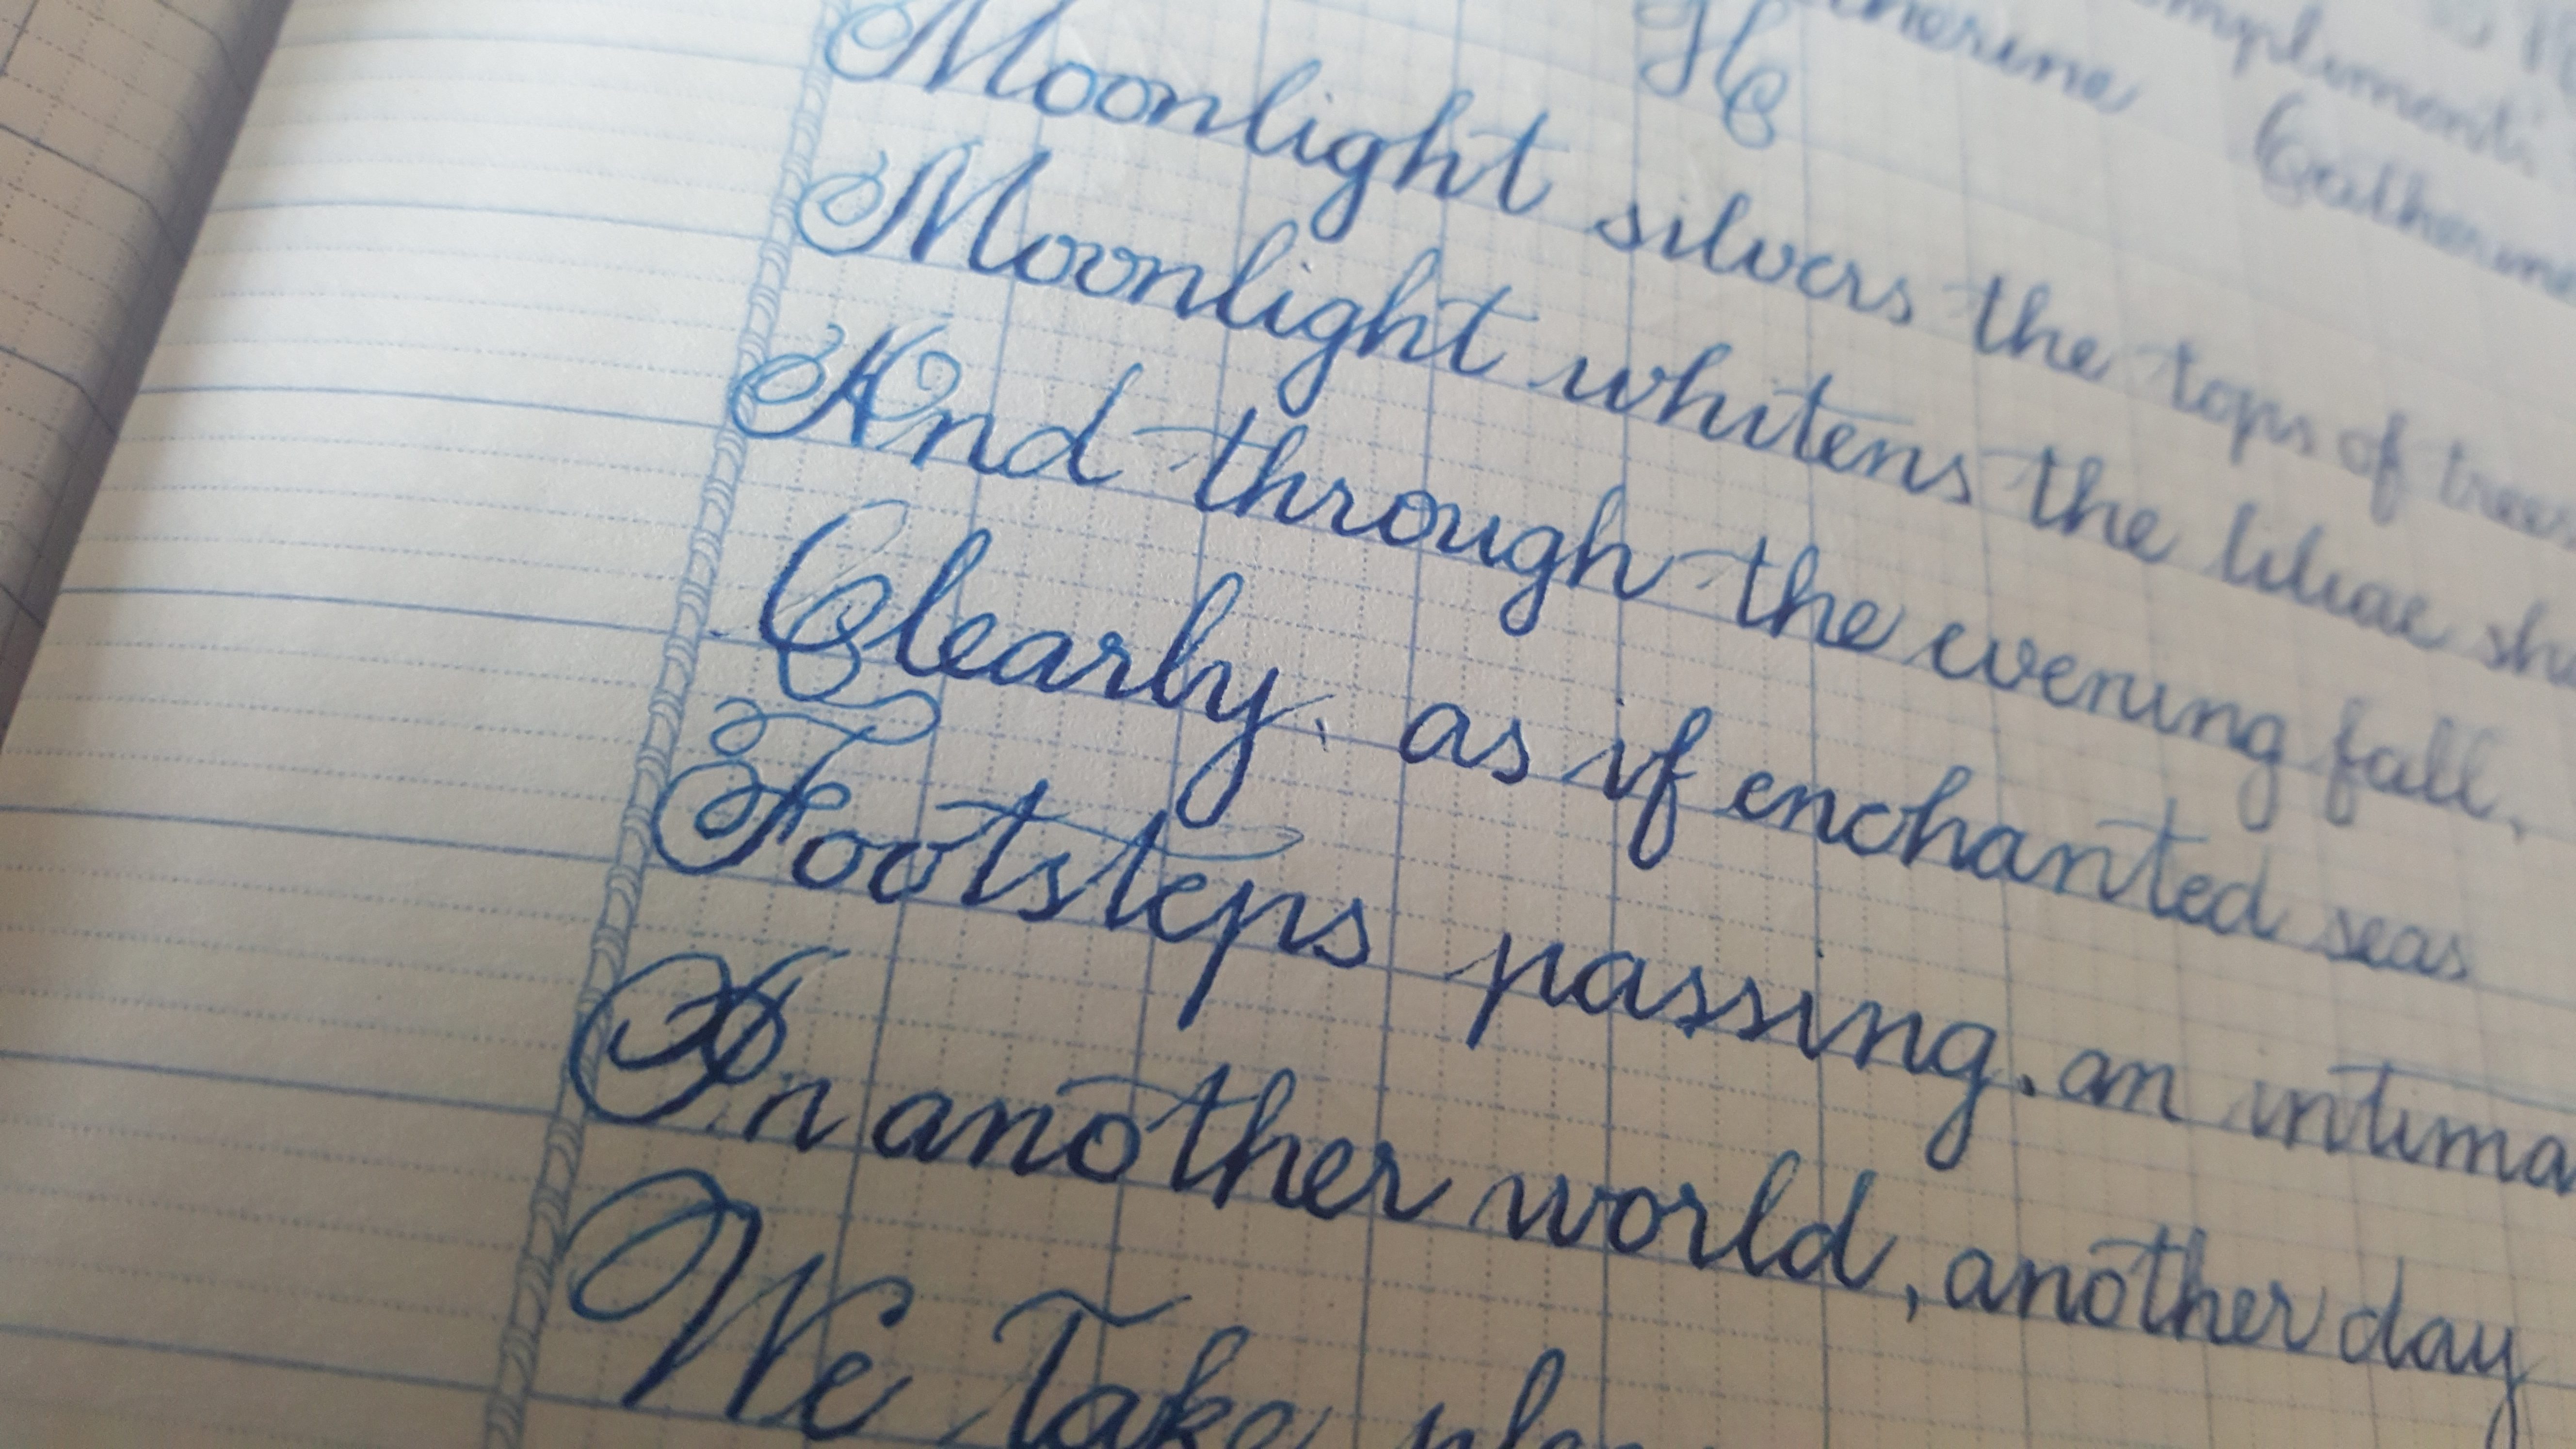 He
Moonlight silvers the tops of trees
Moonlight whitens the lilac
And through the evening fall,
Clearly, as if enchanted seas
Footsteps passing, an
In another world, another day
We Take